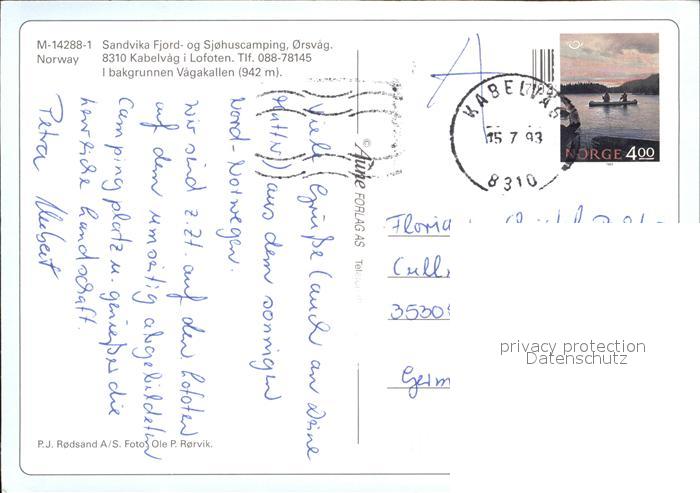 M-14288-1 Sandvika Fjord- og Sjøhuscamping, Ørsvåg.
Norway 8310 Kabelvåg i Lofoten. Tlf. 088-78145
I bakgrunnen Vågakallen (942 m).
A
KABELVÅG
15 7 93
8310
NORGE 4 00
Viele Grüße (auch an Deine
Mutti!) aus dem sonnigen
Nord-Norwegen.
Wir sind z.Zt. auf den Lofoten
auf dem umseitig abgebildeten
Campingplatz u. genießen die
herrliche Landschaft.
Petra Hubert
© Aune FORLAG AS
Floria
353
Germ
privacy protection
Datenschutz
P.J. Rødsand A/S. Foto: Ole P. Rørvik.